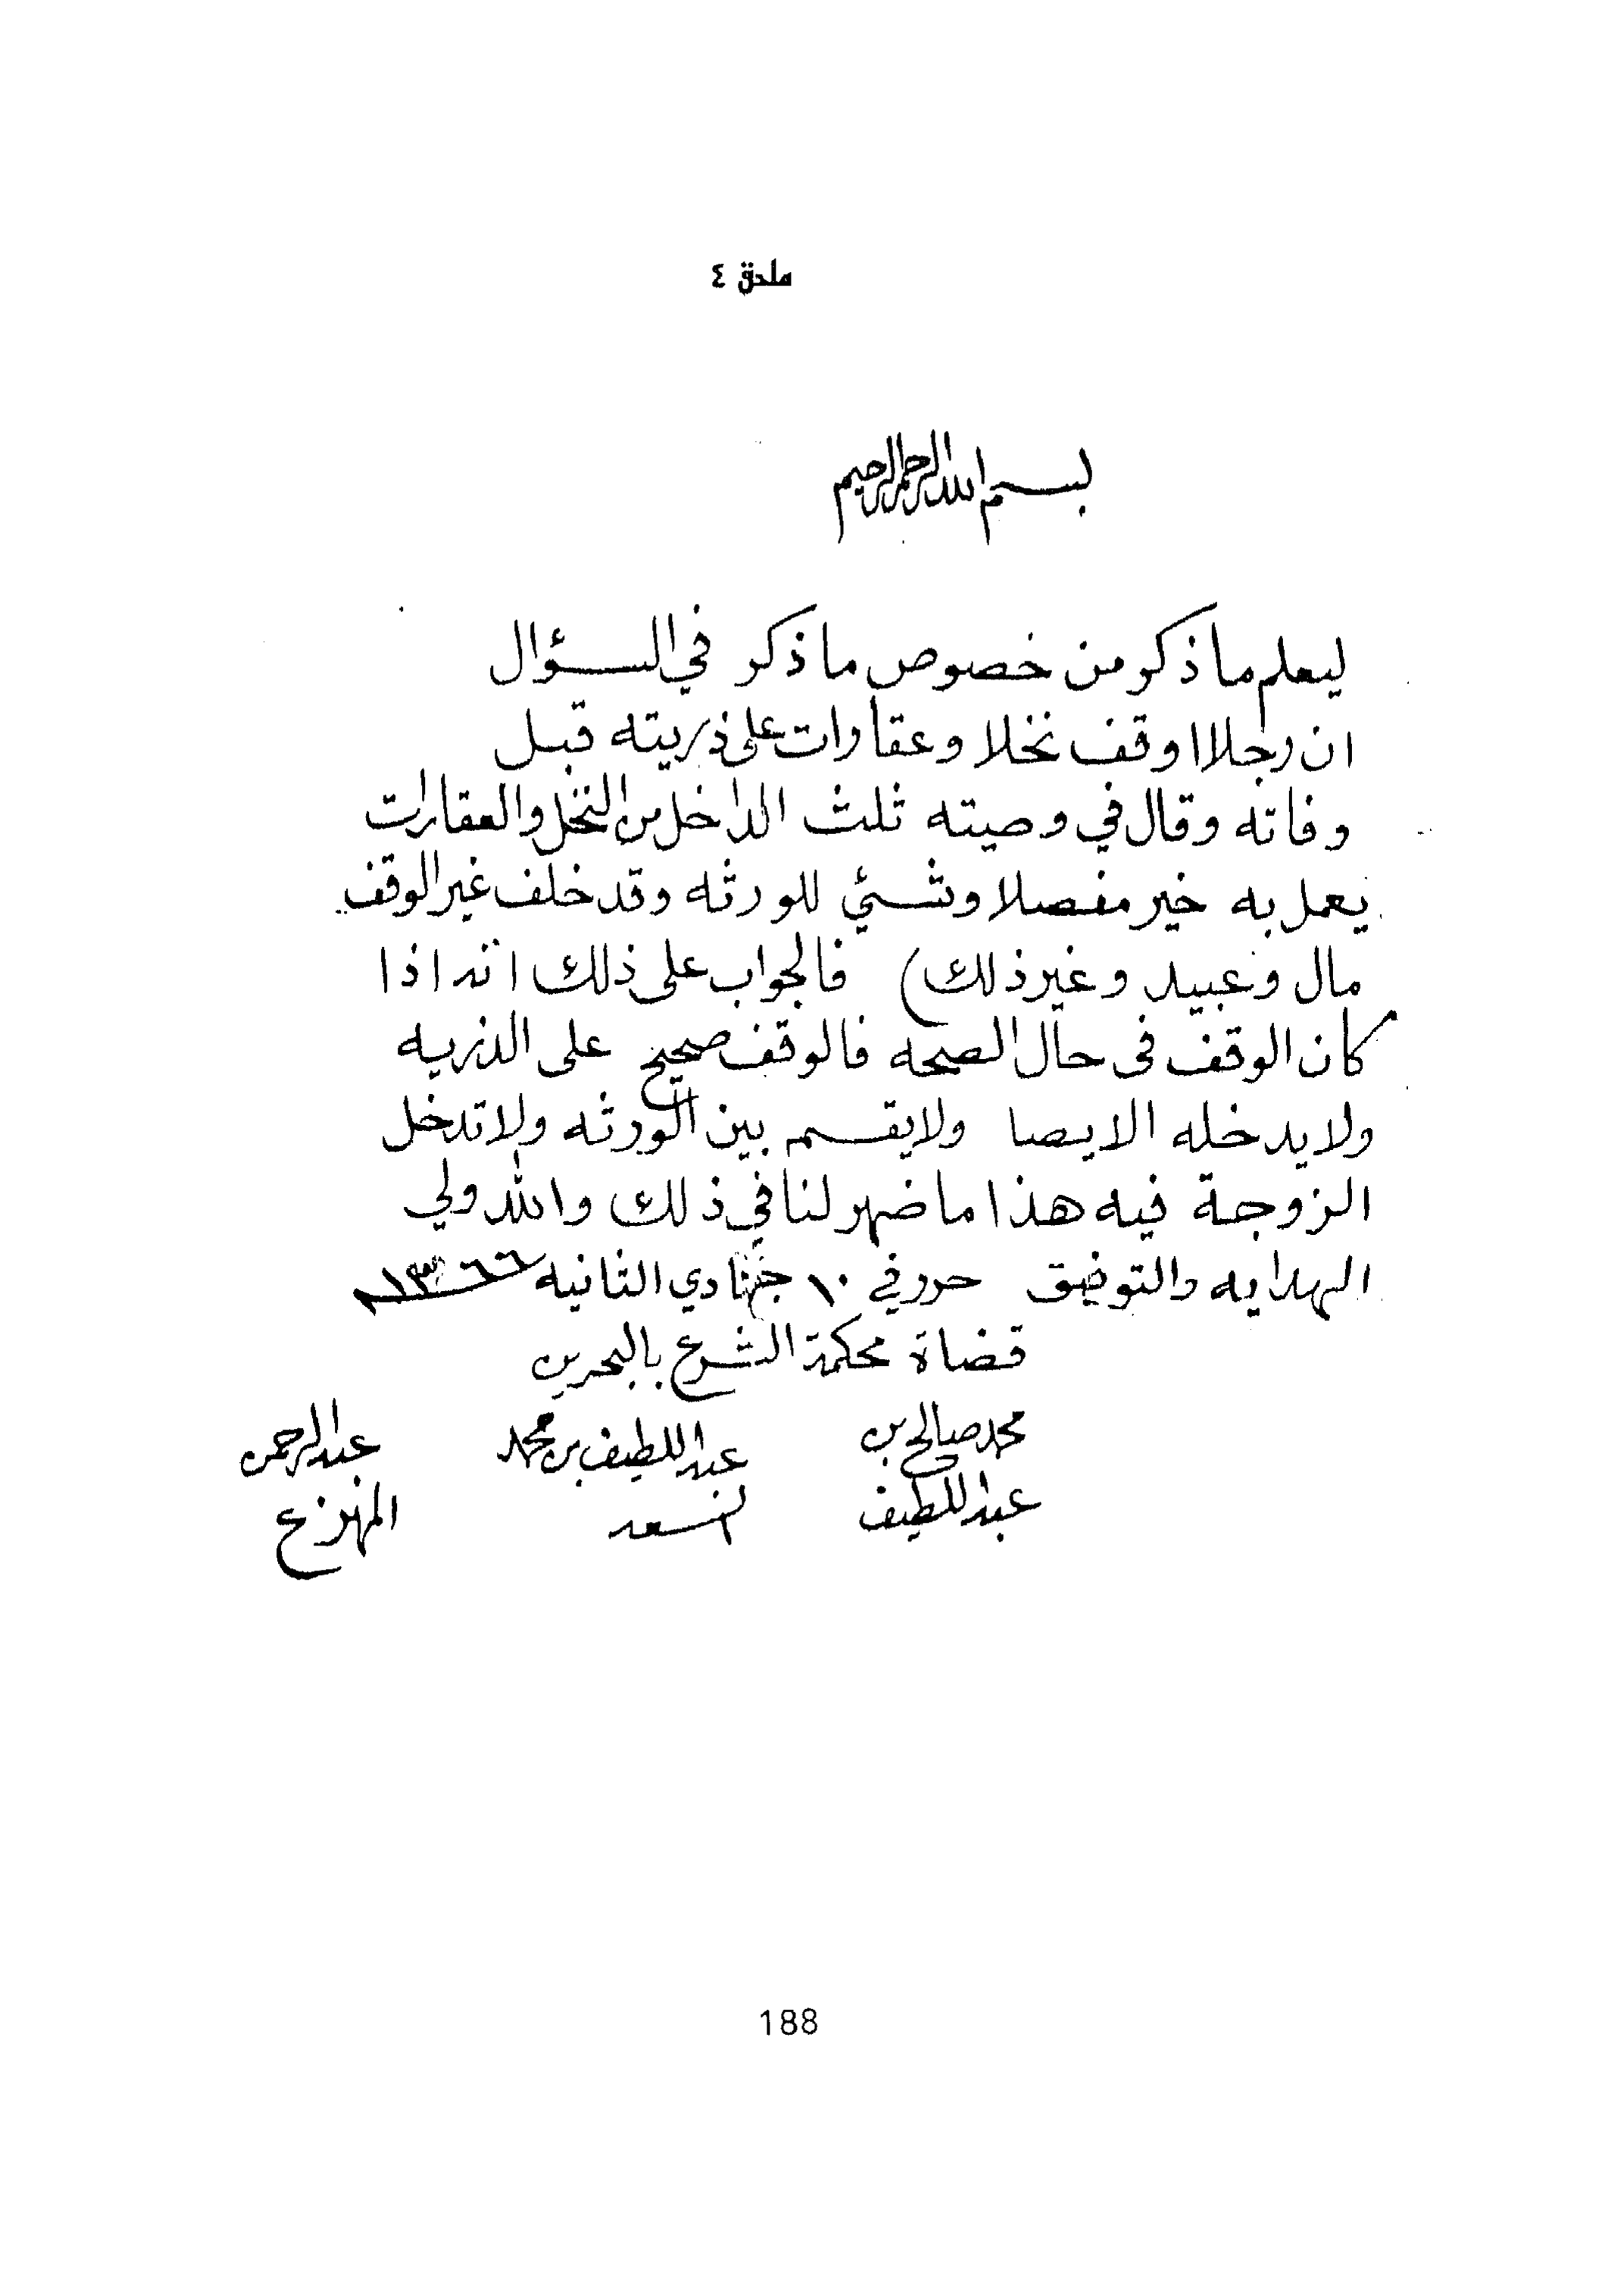 ملحق ٤
بسم الله الرحمن الرحيم
ليعلم ما ذكر من خصوص ما ذكر في السؤال
ان رجلا اوقف نخلا وعقارات على ذريته قبل
وفاته وقال في وصيته ثلث الداخل من النخل والعقارات
يعمل به خير مفصلا وشئي للورثه وقد خلف غير الوقف
مال وعبيد وغير ذلك) فالجواب على ذلك انه اذا
كان الوقف فى حال الصحه فالوقف صحيح على الذريه
ولا يدخله الايصا ولا يقسم بين الورثه ولا تدخل
الزوجة فيه هذا ما ضهر لنا في ذلك والله ولي
الهدايه والتوفيق حرر في ١٠ جمادي الثانيه ١٣٦٦
قضاة محكمة الشرع بالبحرين
محمد صالح بن عبد اللطيف بن محمد عبد الرحمن
عبد اللطيف السعد المهزع
188